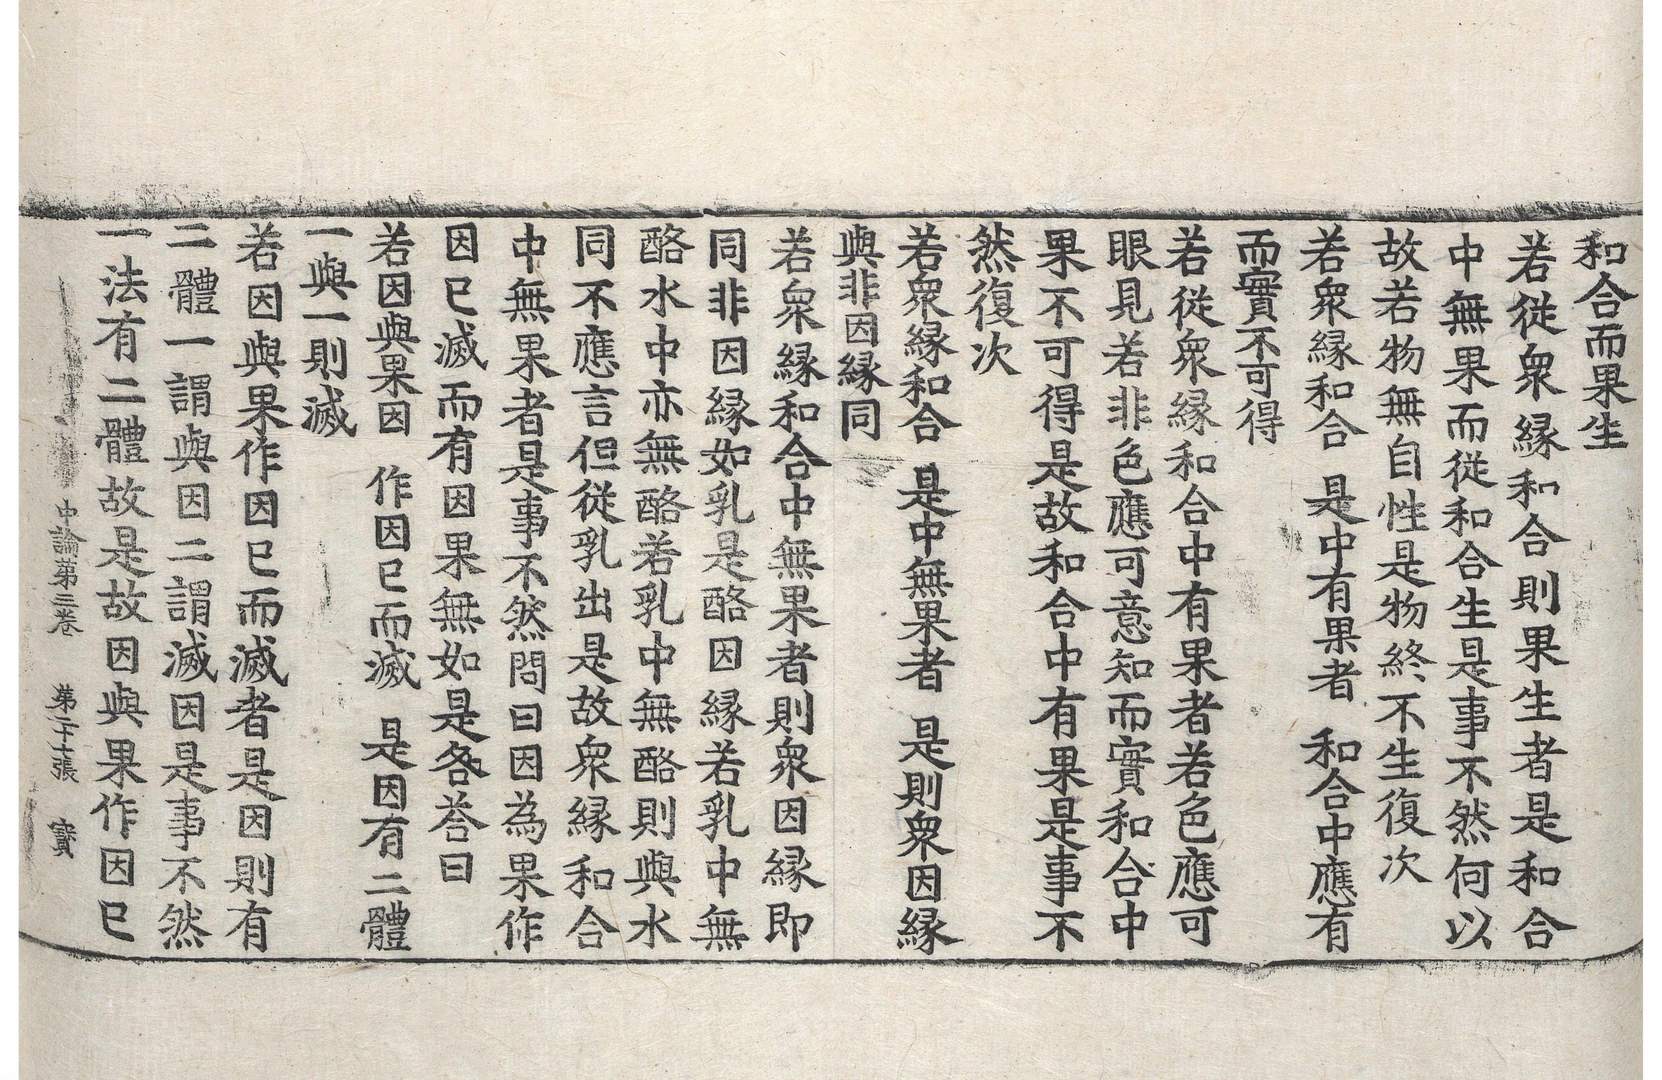 和合而果生
若從衆縁和合則果生者是和合
中無果而從和合生是事不然何以
故若物無自性是物終不生復次
若衆縁和合　是中有果者　和合中應有
而實不可得
若從衆縁和合中有果者若色應可
眼見若非色應可意知而實和合中
果不可得是故和合中有果是事不
然復次
若衆縁和合　是中無果者　是則衆因縁
與非因縁同
若衆縁和合中無果者則衆因縁即
同非因縁如乳是酪因縁若乳中無
酪水中亦無酪若乳中無酪則與水
同不應言但從乳出是故衆縁和合
中無果者是事不然問曰因為果作
因已滅而有因果無如是咎荅曰
若因與果因　作因已而滅　是因有二體
一與一則滅
若因與果作因已而滅者是因則有
二體一謂與因二謂滅因是事不然
一法有二體故是故因與果作因已
中論第三卷　第二十張　寳